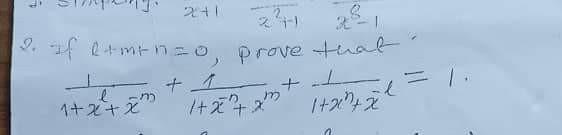 x+1 x²+1 x⁸-1
2. If l+m+n=0, prove that
1/(1+x^l+x^-m) + 1/(1+x^-n+x^m) + 1/(1+x^n+x^-l) = 1.